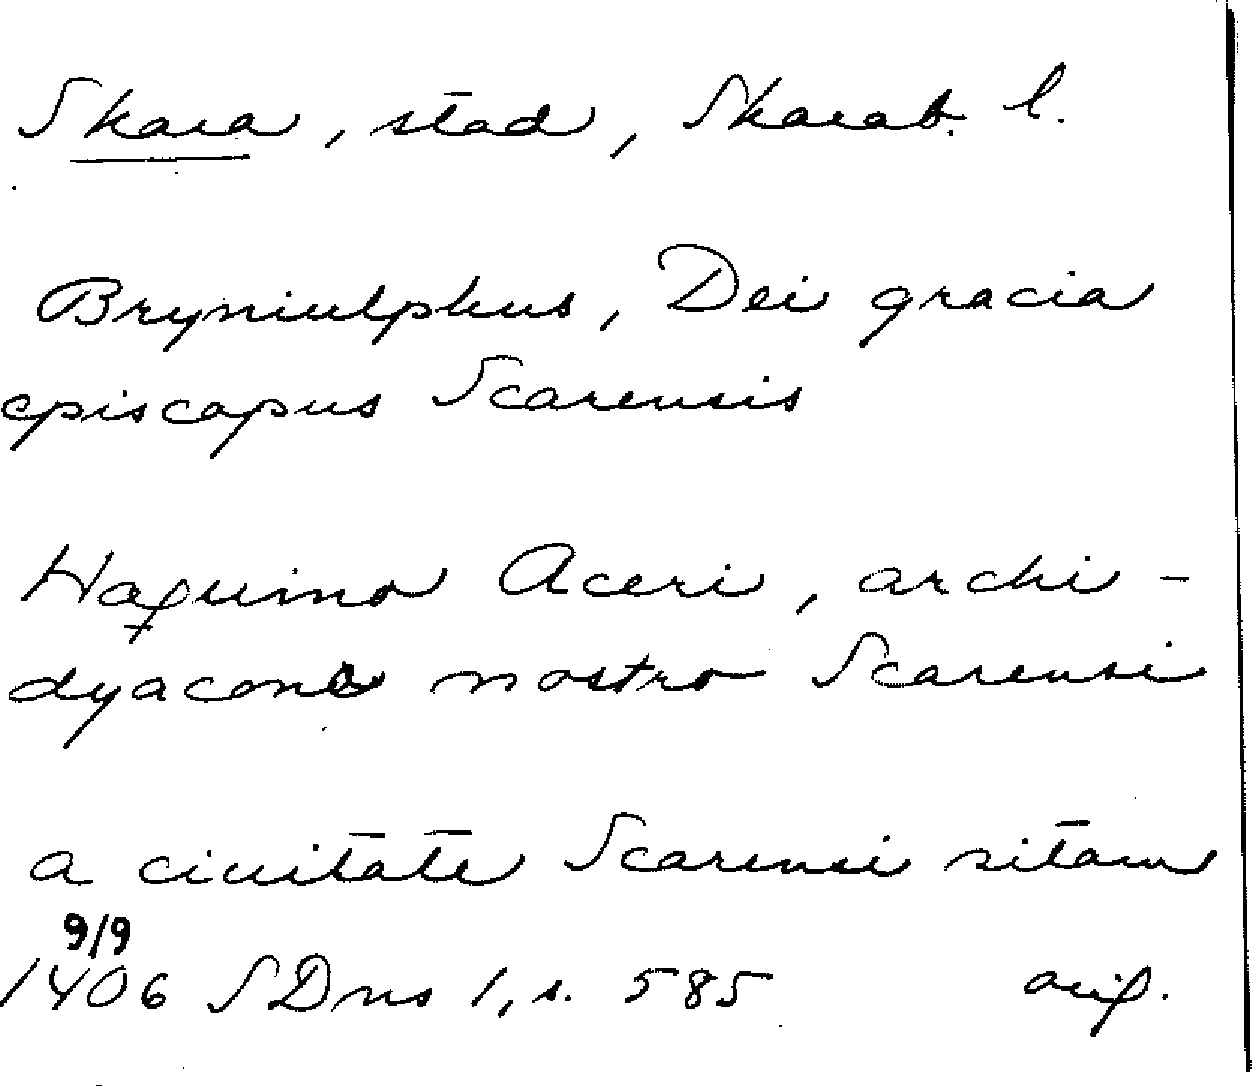 Skara, stad, Skarab. l.
Bryniulphus, Dei gracia
episcopus Scarensis
Haquino Aceri, archi-
dyacono nostro Scarensi
a ciuitate Scarensi sitam
9/9
1406 SDns 1, s. 585 avs.